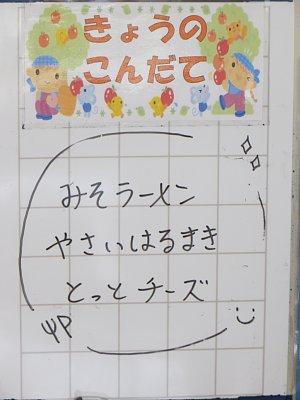 きょうの
こんだて
みそラーメン
やさいはるまき
とっとチーズ